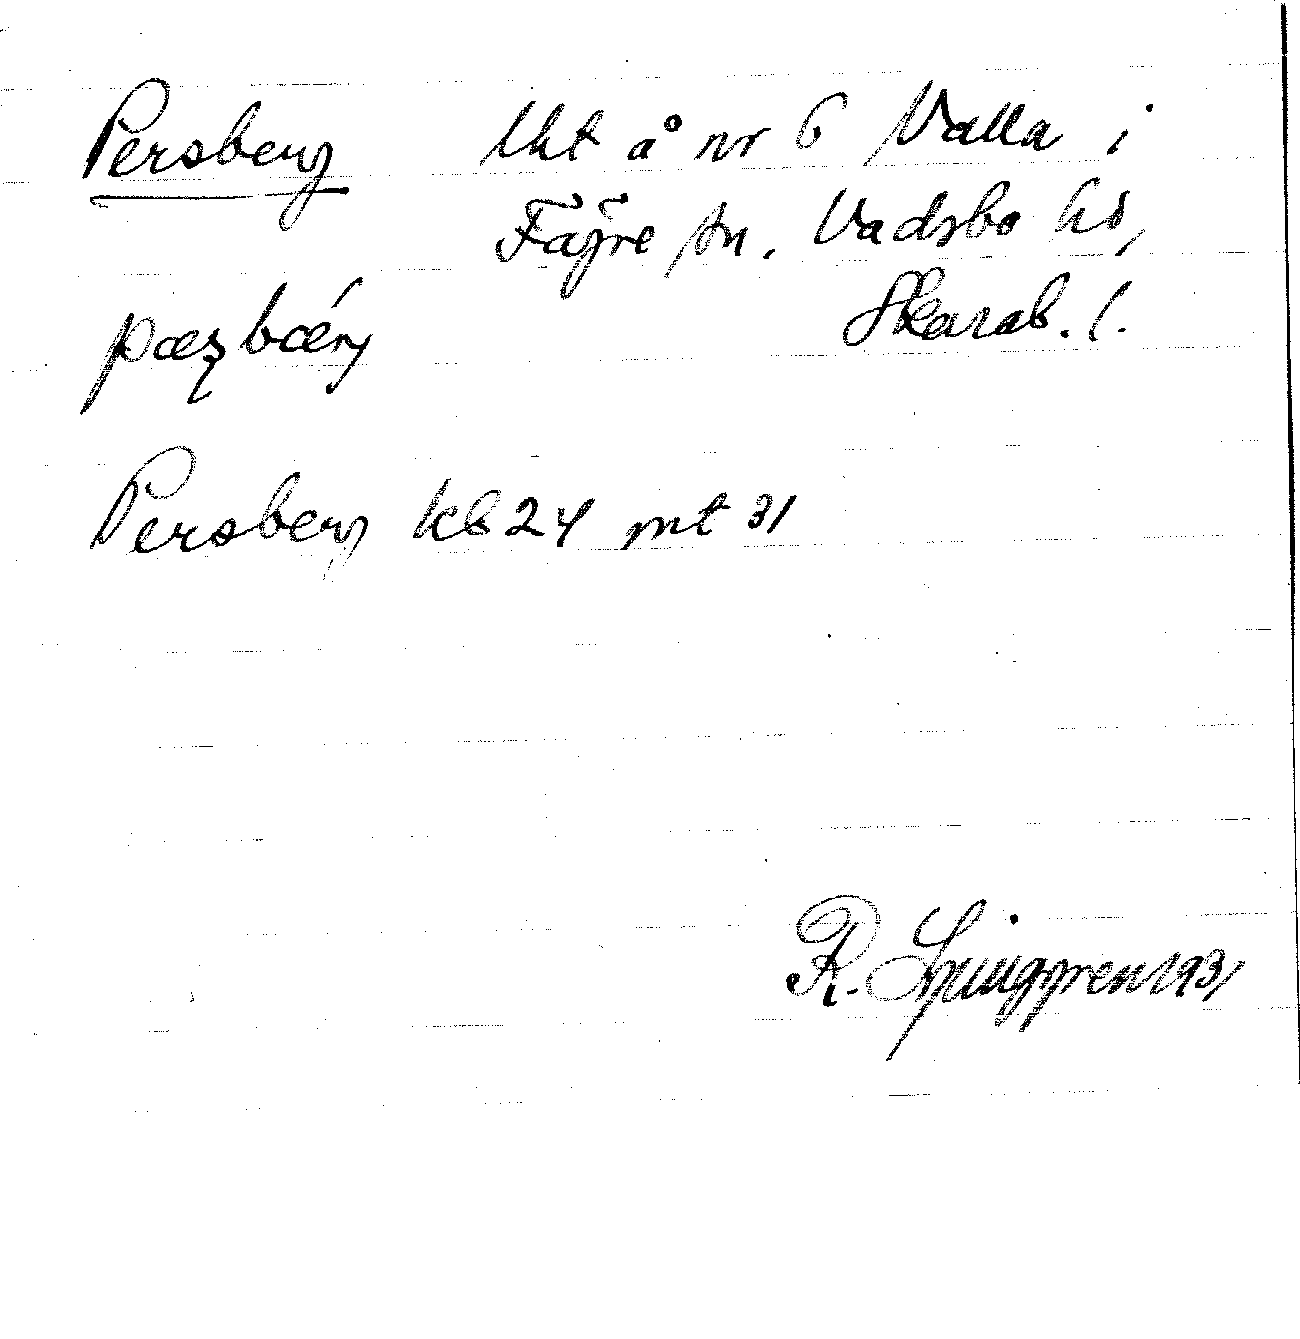 Persberg lht å nr 6 Valla i
Fägre sn, Vadsbo hd,
Skarab. l.
pæʂbæry
Persberg kb 24 mt 31
R. Ljunggren 1931